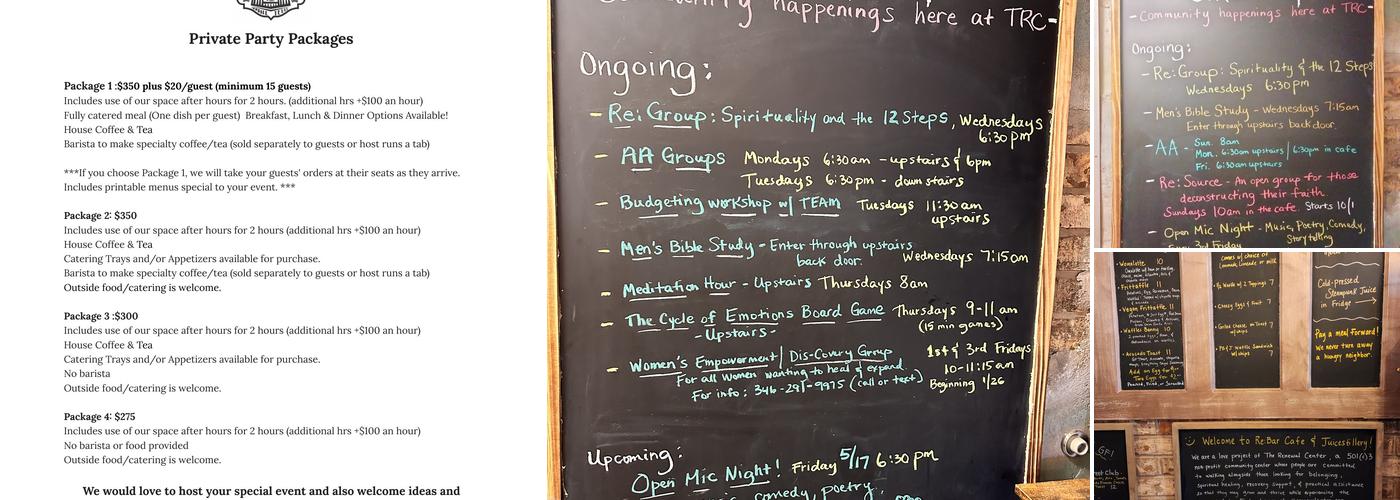 Private Party Packages
Package 1 :$350 plus $20/guest (minimum 15 guests)
Includes use of our space after hours for 2 hours. (additional hrs +$100 an hour)
Fully catered meal (One dish per guest) Breakfast, Lunch & Dinner Options Available!
House Coffee & Tea
Barista to make specialty coffee/tea (sold separately to guests or host runs a tab)
***If you choose Package 1, we will take your guests' orders at their seats as they arrive.
Includes printable menus special to your event. ***
Package 2: $350
Includes use of our space after hours for 2 hours (additional hrs +$100 an hour)
House Coffee & Tea
Catering Trays and/or Appetizers available for purchase.
Barista to make specialty coffee/tea (sold separately to guests or host runs a tab)
Outside food/catering is welcome.
Package 3 :$300
Includes use of our space after hours for 2 hours (additional hrs +$100 an hour)
House Coffee & Tea
Catering Trays and/or Appetizers available for purchase.
No barista
Outside food/catering is welcome.
Package 4: $275
Includes use of our space after hours for 2 hours (additional hrs +$100 an hour)
No barista or food provided
Outside food/catering is welcome.
We would love to host your special event and also welcome ideas and
Community happenings here at TRC-
Ongoing:
- Re:Group: Spirituality and the 12 Steps, Wednesdays
6:30pm
- AA Groups Mondays 6:30am - upstairs & 6pm
Tuesdays 6:30pm - downstairs
- Budgeting workshop w/ TEAM Tuesdays 11:30am
upstairs
- Men's Bible Study - Enter through upstairs
back door. Wednesdays 7:15am
- Meditation Hour - Upstairs Thursdays 8am
- The Cycle of Emotions Board Game Thursdays 9-11am
- Upstairs - (15 min games)
- Women's Empowerment/ Dis-Covery Group 1st & 3rd Fridays
For all women wanting to heal & expand. 10-11:15am
For info: 346-291-9975 (call or text) Beginning 1/26
Upcoming:
Open Mic Night! Friday 5/17 6:30pm
comedy, poetry,
-Community happenings here at TRC-
Ongoing:
- Re:Group: Spirituality & the 12 Steps
Wednesdays 6:30pm
- Men's Bible Study - Wednesdays 7:15am
Enter through upstairs back door.
- AA - Sun. 8am
Mon. 6:30am upstairs / 6:30pm in cafe
Fri. 6:30am upstairs
- Re:Source - An open group for those
deconstructing their faith.
Sundays 10am in the cafe. Starts 10/1
- Open Mic Night - Music, Poetry, Comedy,
3rd Friday Storytelling
Frittaffle 11
Vegan Frittaffle 11
Waffles Benny 10
Avocado Toast 11
Add an Egg
comes w/ choice of
Lemonade or milk
2 Toppings 7
Cheesy Eggs & Fruit 7
Grilled Cheese on Toast
w/chips 7
PB&J Waffle Sandwich
w/chips 7
Cold-pressed
Steampunk Juice
in Fridge
Pay a meal forward!
We never turn away
a hungry neighbor.
Welcome to Re:Bar Cafe & Juicestillery!
We are a love project of The Renewal Center, a 501(c)3
not profit community center whose people are committed
to walking alongside those looking for belonging,
spiritual healing, recovery support, & practical assistance
so that they may grow and thrive